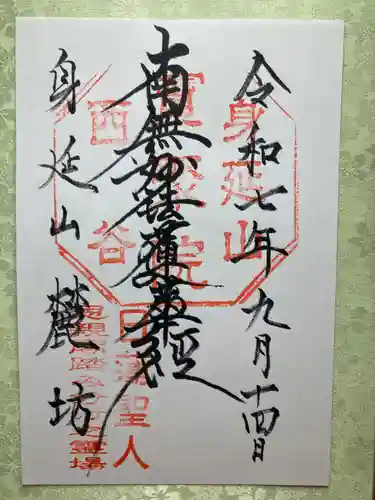 令和七年九月十四日
南無妙法蓮華経
身延山 麓坊
身延山
西谷
日蓮聖人
霊場